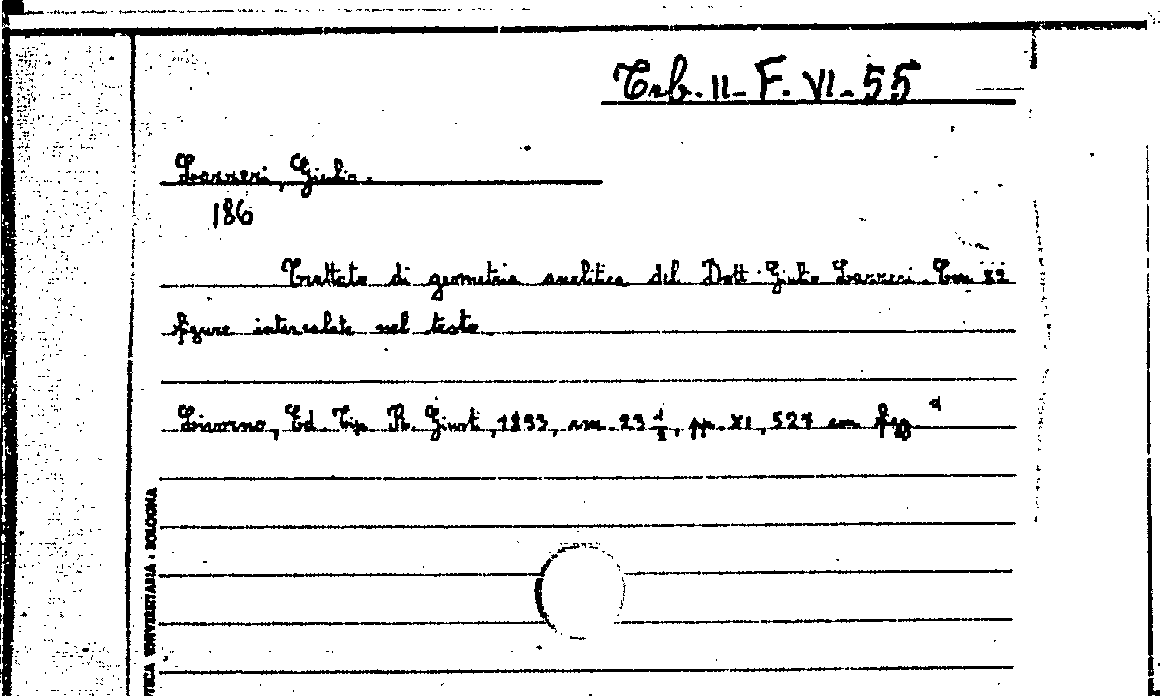 Trb. II - F. VI - 55
Lazzeri, Giulio.
186
Trattato di geometria analitica del Dott. Giulio Lazzeri. Con
figure intercalate nel testo.
Livorno, Ed. Tip. R. Giusti, 1893, cm. 23 ½, pp. XI, 527 con figg.
TECA UNIVERSITARIA - BOLOGNA